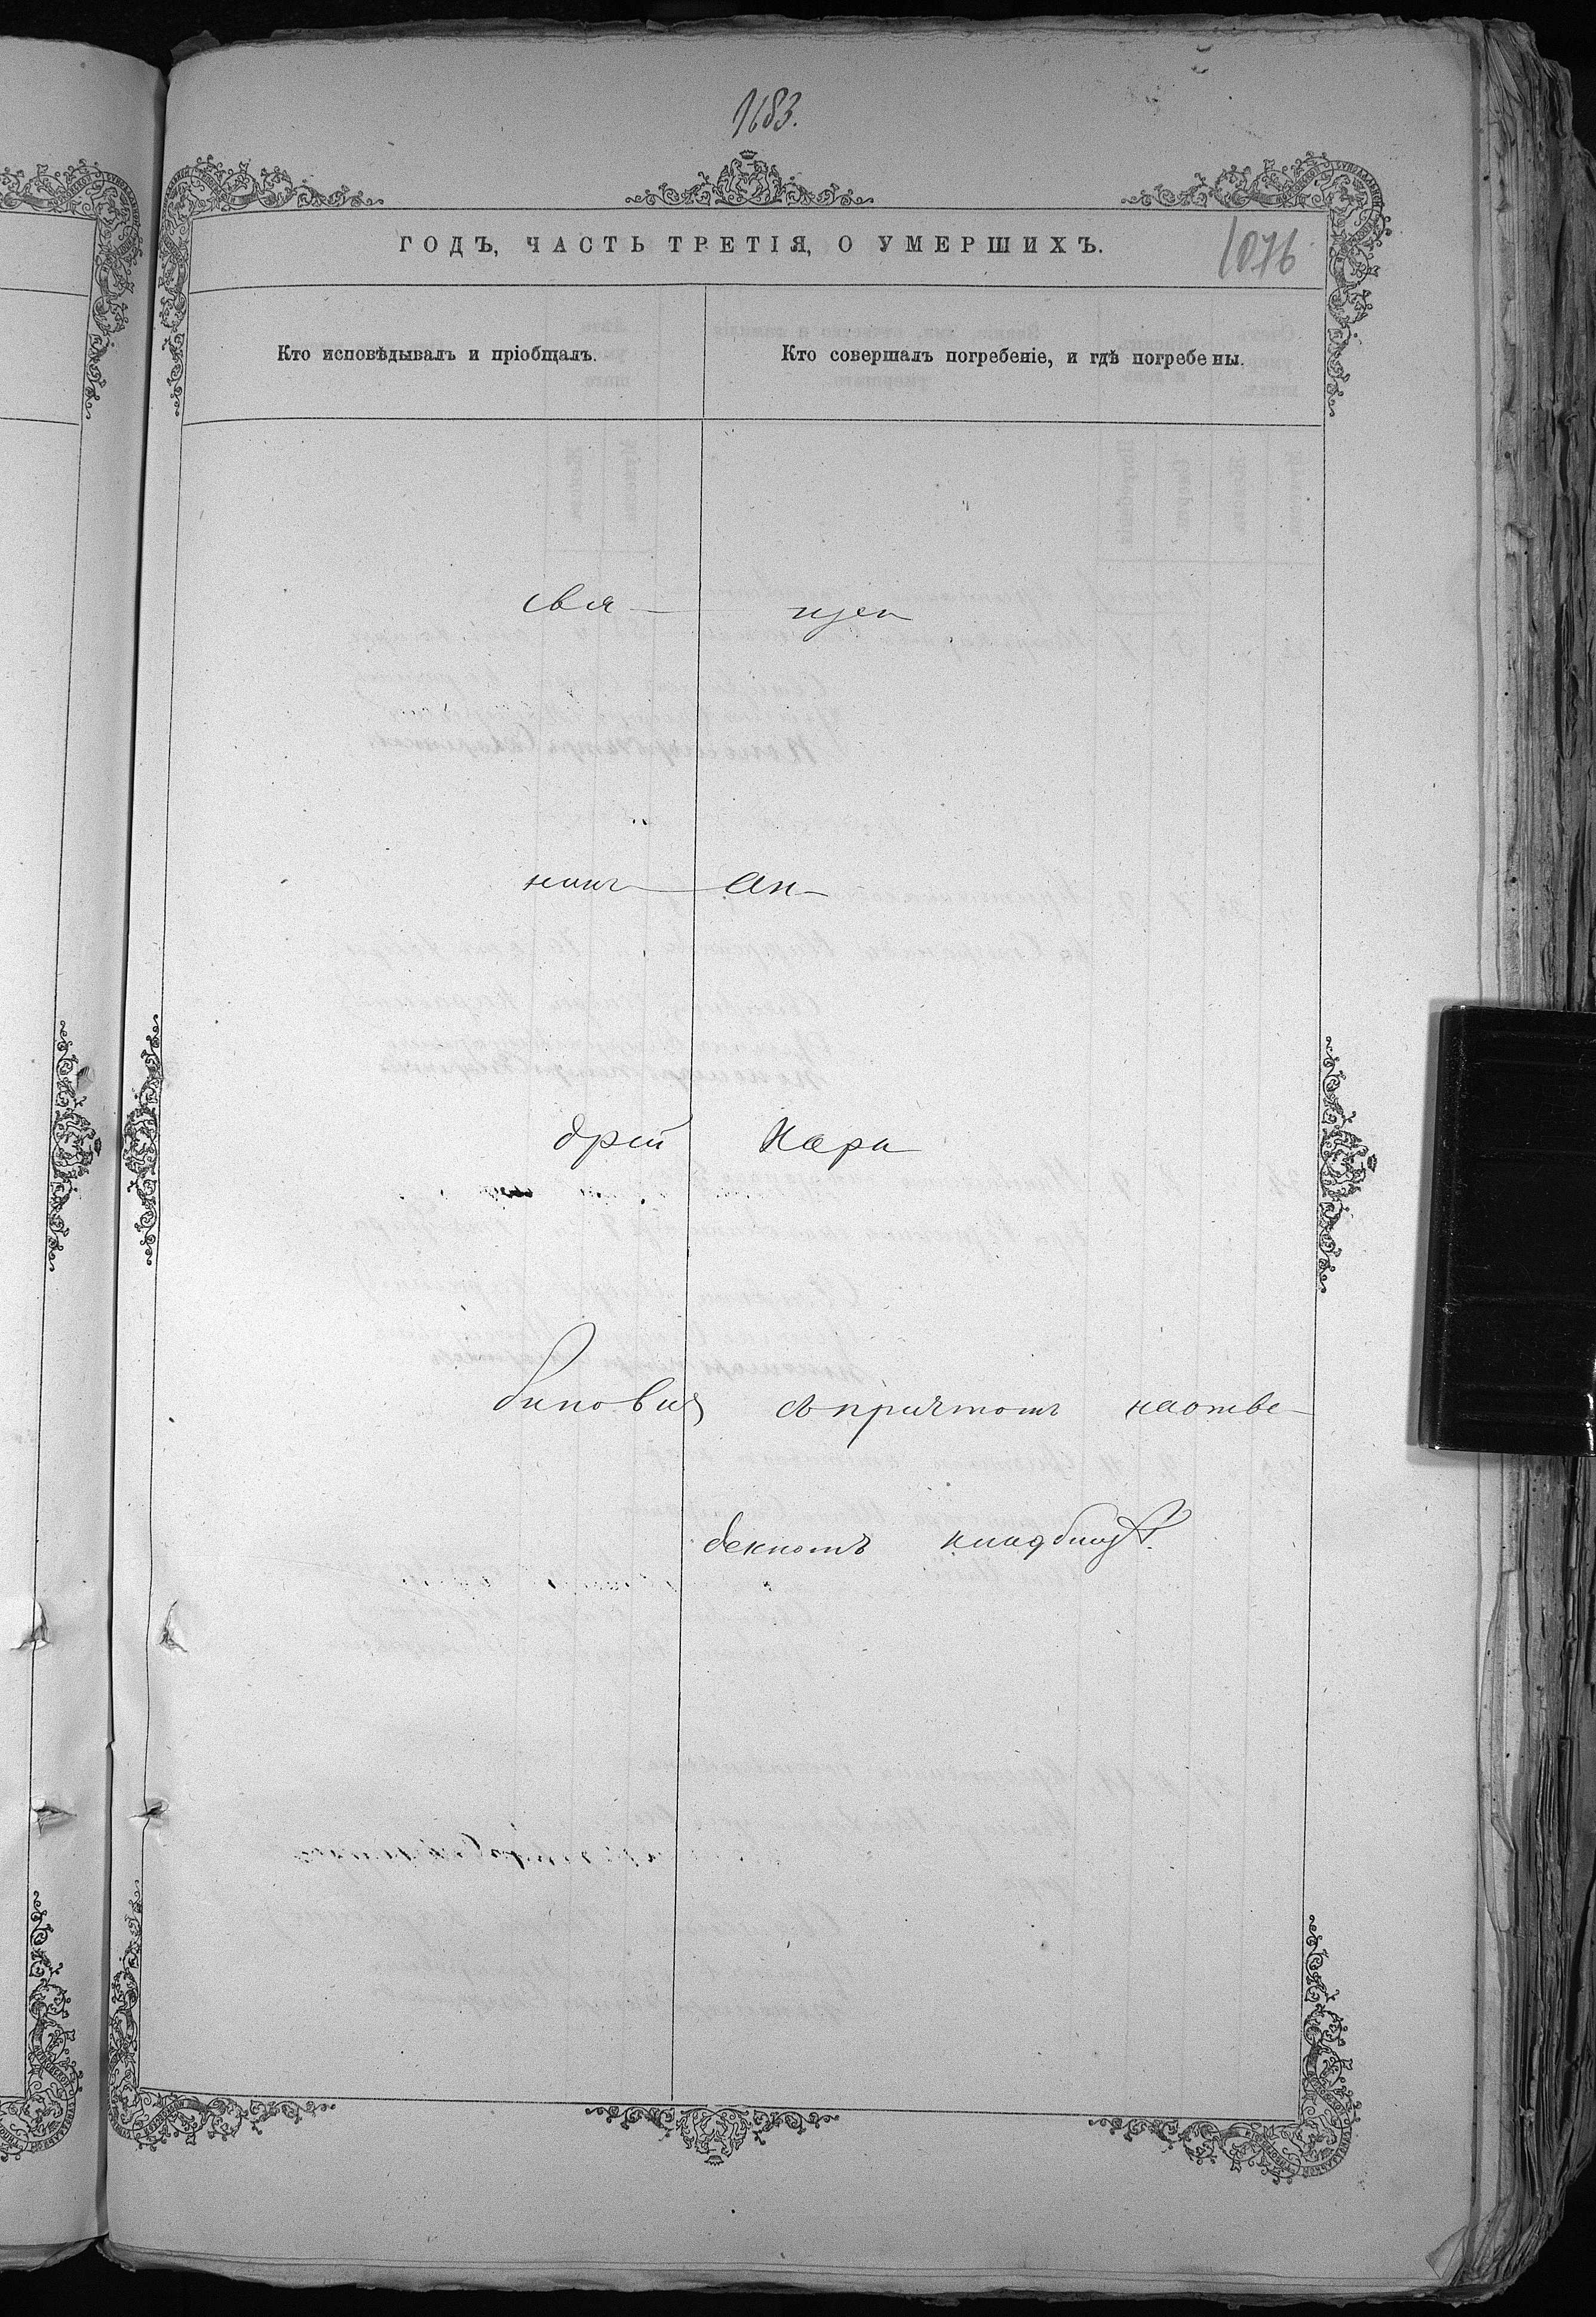 1683.
ГОДЪ, ЧАСТЬ ТРЕТІЯ, О УМЕРШИХЪ.
1076
Кто исповѣдывалъ и пріобщалъ.
Кто совершалъ погребеніе, и гдѣ погребены.
Свя- щен
никъ Ан-
дрей Нара
биновъ съ причтомъ на отве-
деномъ кладбищѣ.